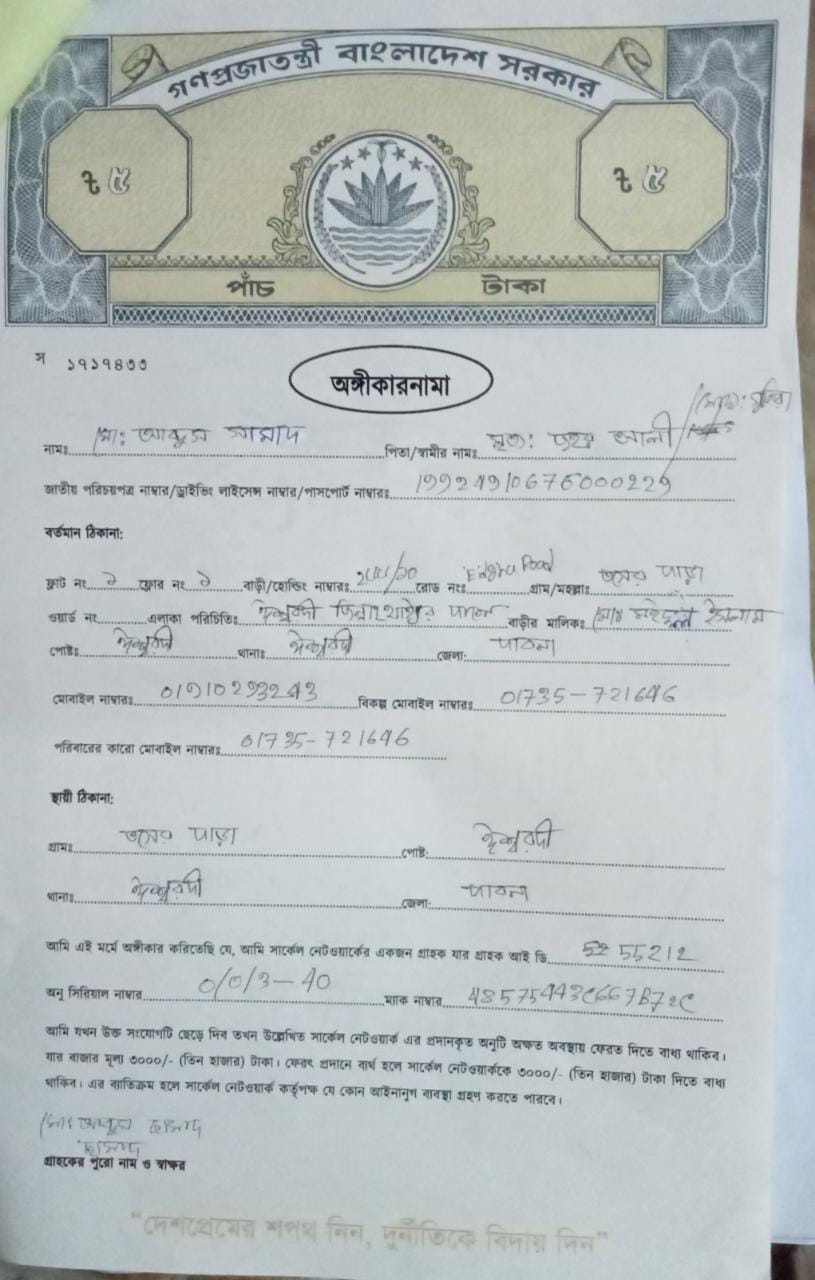 গণপ্রজাতন্ত্রী বাংলাদেশ সরকার
৳ ৫ ৳ ৫
পাঁচ টাকা
স ১৭১৭৪৩৩
অঙ্গীকারনামা
নামঃ মোঃ আব্দুস সামাদ পিতা/স্বামীর নামঃ মৃত: আলী
জাতীয় পরিচয়পত্র নাম্বার/ড্রাইভিং লাইসেন্স নাম্বার/পাসপোর্ট নাম্বারঃ 19924910676000229
বর্তমান ঠিকানা:
ফ্লাট নং ফ্লোর নং বাড়ী/হোল্ডিং নাম্বারঃ রোড নংঃ Road গ্রাম/মহল্লাঃ পাড়া
ওয়ার্ড নং এলাকা পরিচিতিঃ ঈশ্বরদী বাড়ীর মালিকঃ মোঃ ইসলাম
পোষ্টঃ ঈশ্বরদী থানাঃ ঈশ্বরদী জেলা: পাবনা
মোবাইল নাম্বারঃ 01910293243 বিকল্প মোবাইল নাম্বারঃ 01735-721646
পরিবারের কারো মোবাইল নাম্বারঃ 01735-721646
স্থায়ী ঠিকানা:
গ্রামঃ পাড়া পোষ্ট: ঈশ্বরদী
থানাঃ ঈশ্বরদী জেলা: পাবনা
আমি এই মর্মে অঙ্গীকার করিতেছি যে, আমি সার্কেল নেটওয়ার্কের একজন গ্রাহক যার গ্রাহক আই ডি 55212
অনু সিরিয়াল নাম্বার 0/0/3-40 ম্যাক নাম্বার 48575443C667B72C
আমি যখন উক্ত সংযোগটি ছেড়ে দিব তখন উল্লেখিত সার্কেল নেটওয়ার্ক এর প্রদানকৃত অনুটি অক্ষত অবস্থায় ফেরত দিতে বাধ্য থাকিব।
যার বাজার মূল্য ৩০০০/- (তিন হাজার) টাকা। ফেরৎ প্রদানে ব্যর্থ হলে সার্কেল নেটওয়ার্ককে ৩০০০/- (তিন হাজার) টাকা দিতে বাধ্য
থাকিব। এর ব্যতিক্রম হলে সার্কেল নেটওয়ার্ক কর্তৃপক্ষ যে কোন আইনানুগ ব্যবস্থা গ্রহণ করতে পারবে।
মোঃ আব্দুস ছামাদ
ছামাদ
গ্রাহকের পুরো নাম ও স্বাক্ষর
“দেশপ্রেমের শপথ নিন, দুর্নীতিকে বিদায় দিন”